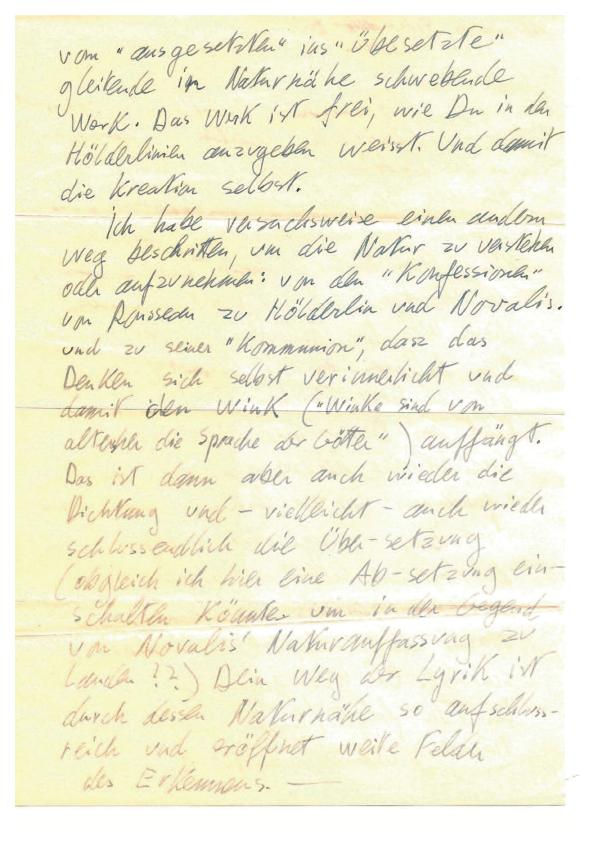 vom "ausgesetzten" ins "Übesetzte"
gleitende in Naturnähe schwebende
Werk. Das Werk ist frei, wie Du in den
Hölderlinien anzugeben weisst. Und damit
die Kreation selbst.
Ich habe versuchsweise einen andern
Weg beschritten, um die Natur zu verstehen
oder aufzunehmen: von den "Konfessionen"
von Rousseau zu Hölderlin und Novalis.
und zu seiner "Kommunion", dasz das
Denken sich selbst verinnerlicht und
damit den Wink ("Winke sind von
altersher die Sprache der Götter") auffängt.
Das ist dann aber auch wieder die
Dichtung und - vielleicht - auch wieder
schlussendlich die Über-setzung
(obgleich ich hier eine Ab-setzung ein-
schalten könnte um in der Gegend
von Novalis' Naturauffassung zu
landen??) Dein Weg der Lyrik ist
durch dessen Naturnähe so aufschluss-
reich und eröffnet weite Felder
des Erkennens. —